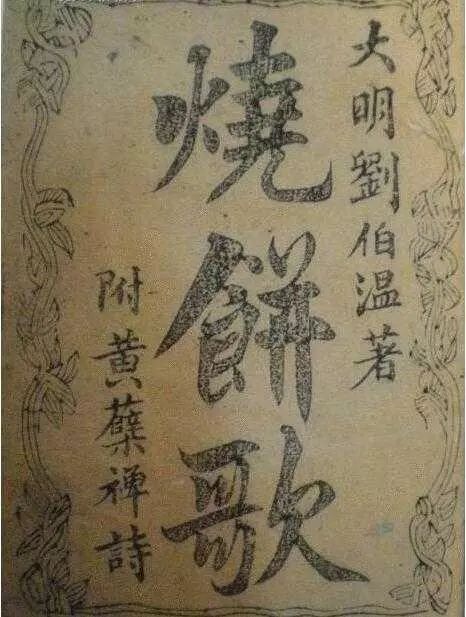 大明劉伯温著
燒餅歌
附黃蘗禅詩